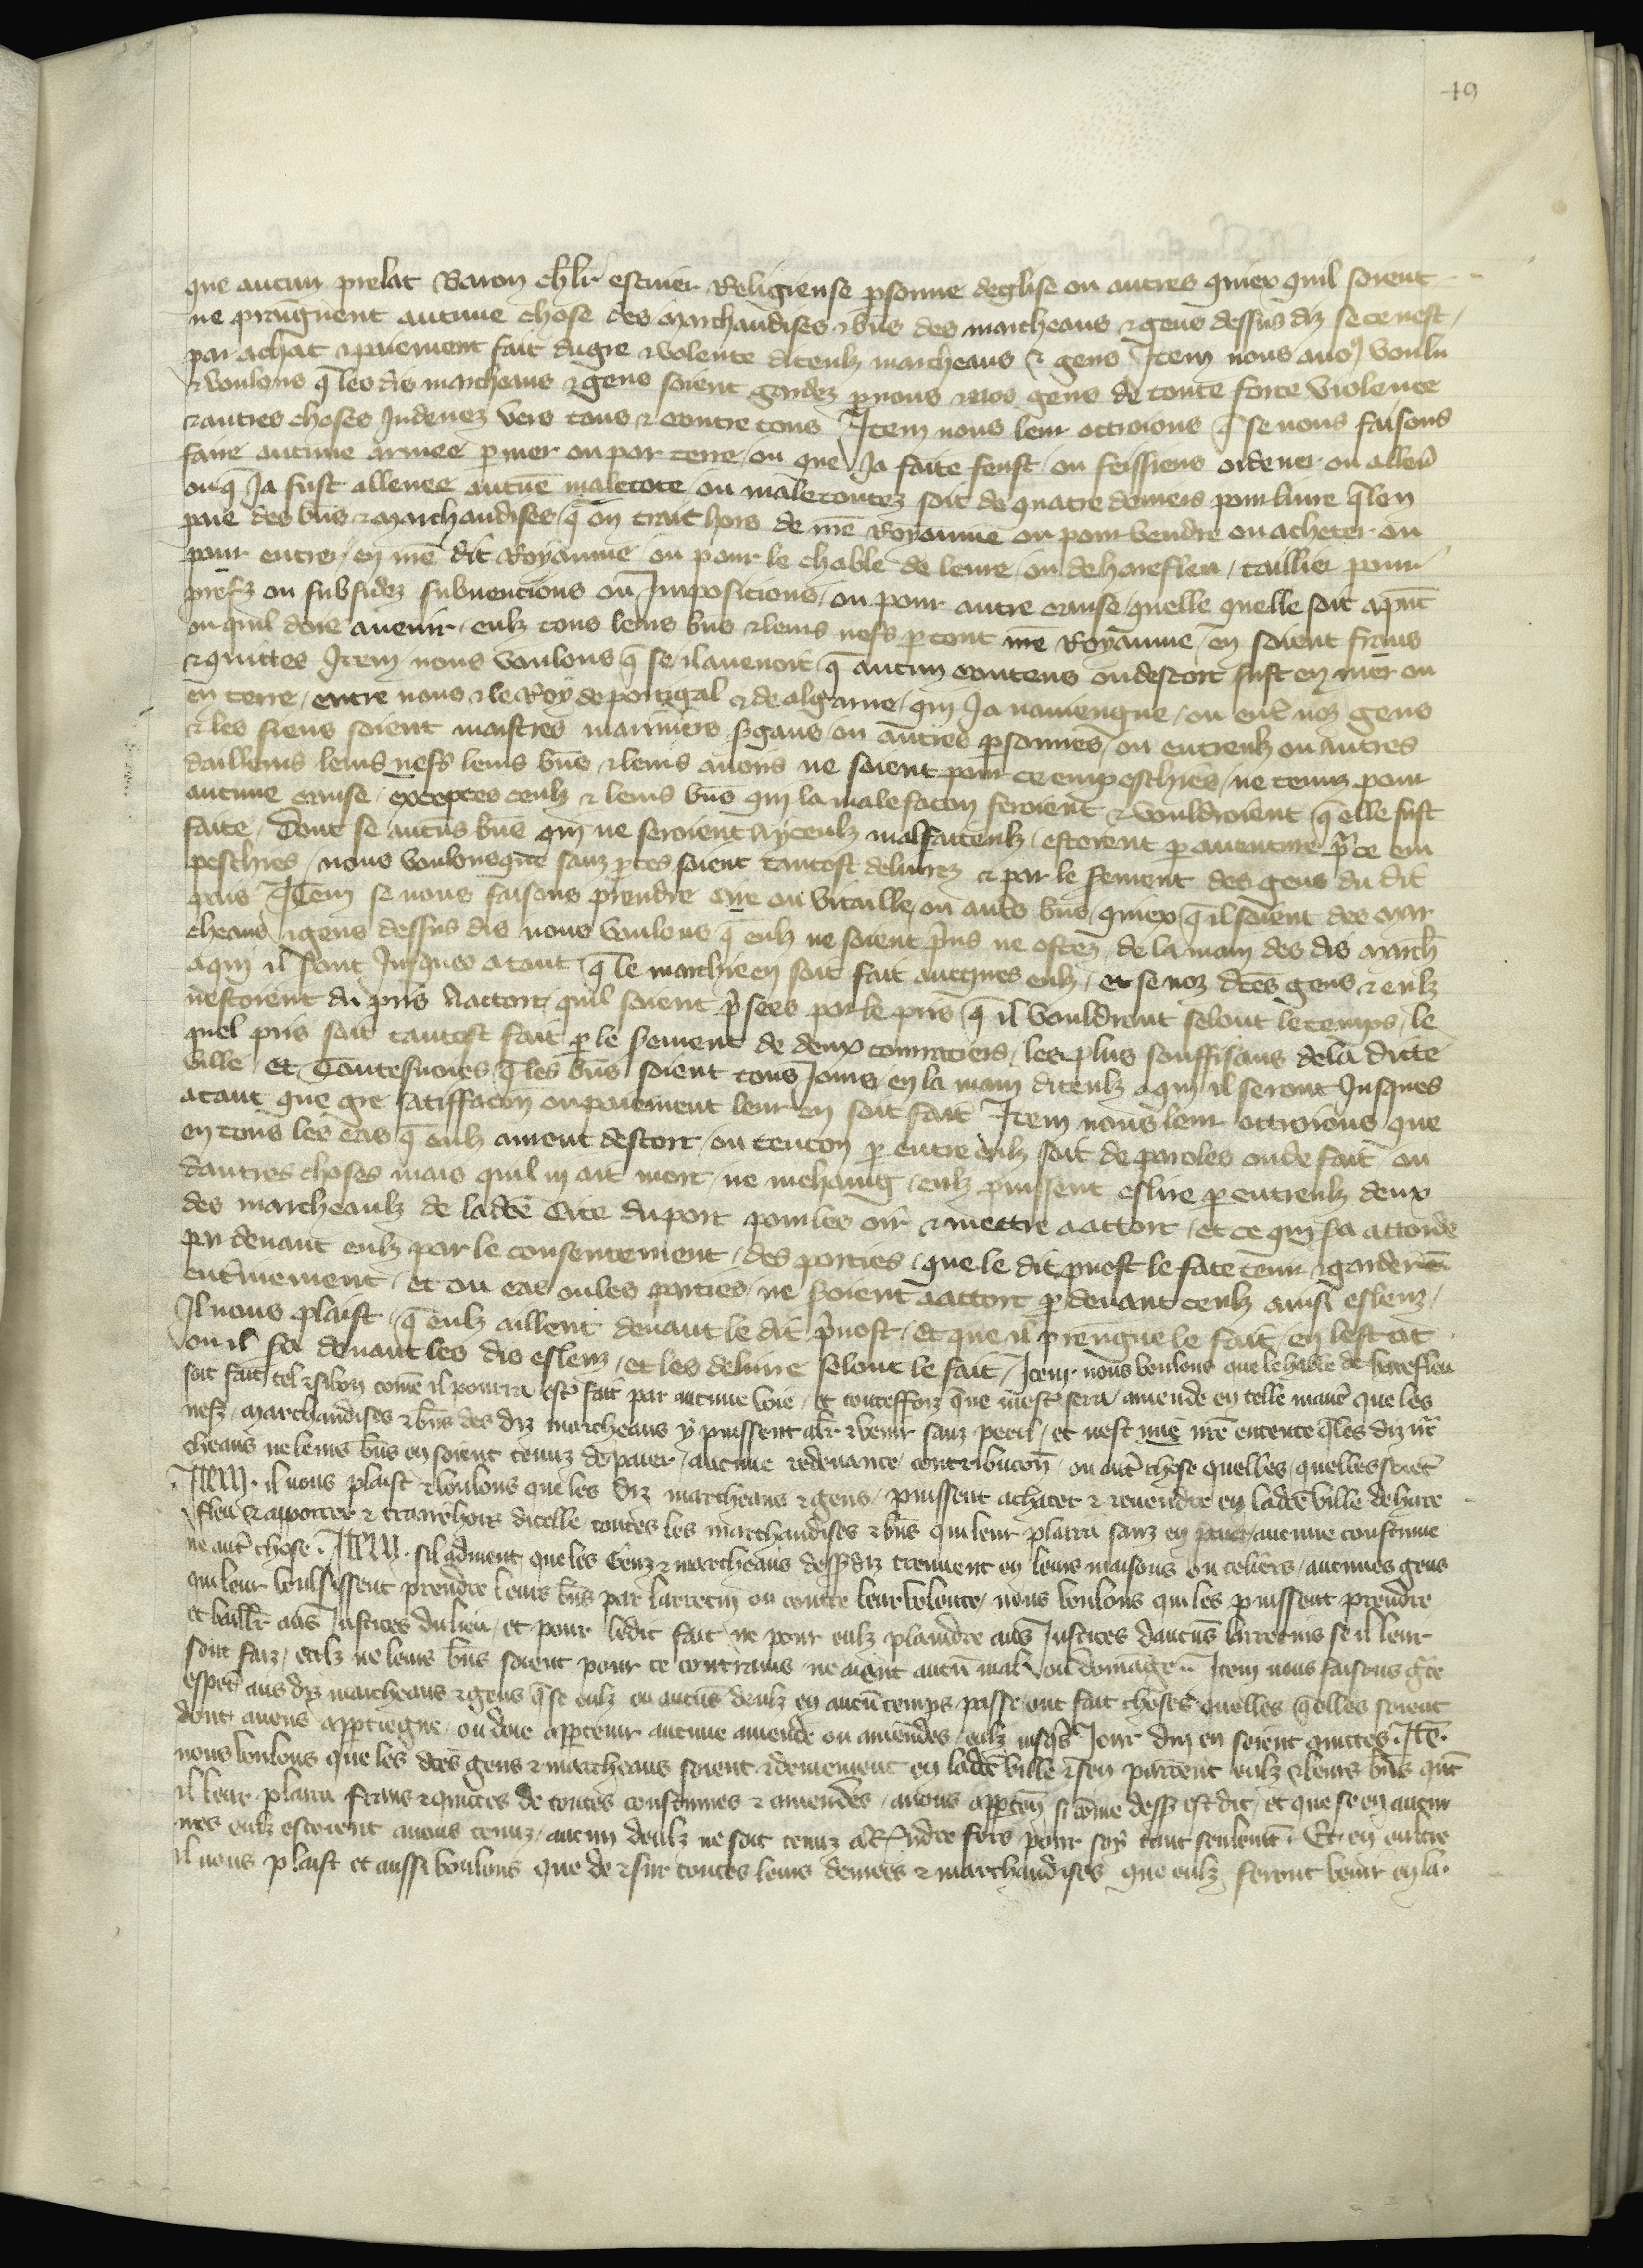 49
que aucun prelat Baron chlr escuier Religieuse psonne deglise ou autres quiex quil soient
ne praignent aucune chose des marchandises & bns des marcheans & gens dessus diz se ce nest
par achat & paiement fait du gre & volente diceulz marcheans & gens Item nous auos voulu
& voulons q les dis marcheans & gens soient gardez p nous & nos gens de toute force violence
& autres choses Indeuez vers tous & contre tous Item nous leur ottroions q se nous faisons
faire aucune armee p mer ou par terre ou que Ja faite feust ou feissiens ordener ou alleu
ou q Ja fust alleuee aucune maletote ou maletoutez soit de quatre deniers pour liure q len
paie des bns & marchandises q on trait hors de nre Royaume ou pour vendre ou acheter ou
pour entrer en nre dit Royaume ou pour le chable de leure ou de harefleu taillier pour
prefz ou subsidez subuencions ou Imposicions ou pour autre cause quelle quelle soit apnt
ou quil doie auenir eulz tous leurs bns & leurs nefs p tout nre Royaume en soient frans
& quittes Item nous voulons q se il auenoit q aucun contens ou descort fust en mer ou
en terre entre nous & le Roy de portigal & de algarue qui Ja nauiengne ou entre noz gens
& les siens soient maistres mariniers sgans ou autres psonnes ou entreulz ou autres
dailleurs leurs nefs leurs bns & leurs auoirs ne soient pour ce empeschies ne tenuz pour
aucune cause exceptes ceulz & leurs bns qui la malefacon feroient & vouldroient q elle fust
faite Dont se aucus bns qui ne seroient a yceulz malfaiteulz estoient p auenture pr ce em
peschies nous voulons que sanz ptes soient tantost deliurez & par le serment des gens du dit
pais Item se nous faisons prendre cire ou vitaille ou autres bns quiex q il soient des mar
cheans & gens dessus dis nous voulons q eulz ne soient pris ne ostez de la main des dis march
a qui il sont Jusques a tant q le marchie en soit fait auecques eulz et se noz dtes gens & eulz
nestoient du pris a accort quil soient prisees par le pris q il vouldront selont le temps le
quel pris soit tantost fait p le serment de deux courratiers les plus souffisans de la dicte
ville et Toutesuoies q les bns soient tous Jours en la main diceulz a qui il seront Jusques
a tant que gre satiffacion ou paiement leur en soit fait Item nous leur ottroions que
en tous les cas q eulz aient descort ou tencon p entre eulz soit de paroles ou de fait ou
dautres choses mais quil ni ait mort ne mehaing eulz puissent eslire p entreulz deux
des marcheaulz de ladte Cite du port pour les oir & mettre a accort et ce qui sa accorde
p deuant eulz par le consentement des parties que le dit puost le face tenir & garder
entierement et ou cas ou les parties ne soient a accort p deuant ceulz ainsi esleuz
Il nous plaist q eulz aillent deuant le dit puost Et que il prengne le fait en lestat
ou il sa deuant les dis esleuz et les deliure selont le fait Item nous voulons que le hable de harefleu
soit fait tel & si bon come il pourra estre fait par aucune voie et touteffoiz que mestr sera amende en telle manr que les
nefz marchandises & bns des diz marcheans y puissent alr & venir sanz peril et nest mie nre entente q les diz mr
cheans ne leurs bns en soient tenuz de paier aucune redeuance contribucon ou autr chose quelles quelles soiet
Item il nous plaist & voulons que les diz marcheans & gens puissent achater & reuendre en ladte ville de hare
fleu & apporter & traire hors dicelle toutes les marchandises & bns qui leur plaira sanz en paier aucune coustume
ne autr chose Item sil aduient que les Genz & marcheans dessus diz treuuent en leurs maisons ou celiers aucunes gens
qui leur voulsissent prendre leurs bns par larrecin ou contre leur volente nous voulons qui les puissent prendre
et baillr aus Justices du lieu et pour ledit fait ne pour eulz plaindre aus Justices daucus larrecins se il leur
sont faiz eulz ne leurs bns soient pour ce contrains ne aient aucu mal ou domage Item nous faisons gce
esptl aus diz marcheans & gens q se eulz ou aucus deulz en aucu temps passe ont fait choses quelles q elles soient
dont a nous apptiegne ou doie apptenir aucune amende ou amendes eulz iusqs Jour duy en soient quittes Ite
nous voulons que les dtes gens & marcheans soient & demeurent en ladte ville & sen partent eulz & leurs bns qnt
il leur plaira frans & quittes de toutes coustumes & amendes a nous appten si come dess est dit et que se en aucun
nes eulz estoient a nous tenuz aucun deulz ne soit tenuz a Rendre fors pour soy tant seulemt Et en oultre
il nous plaist et aussi voulons que de & sur toutes leurs denrees & marchandises que eulz feront venir en la